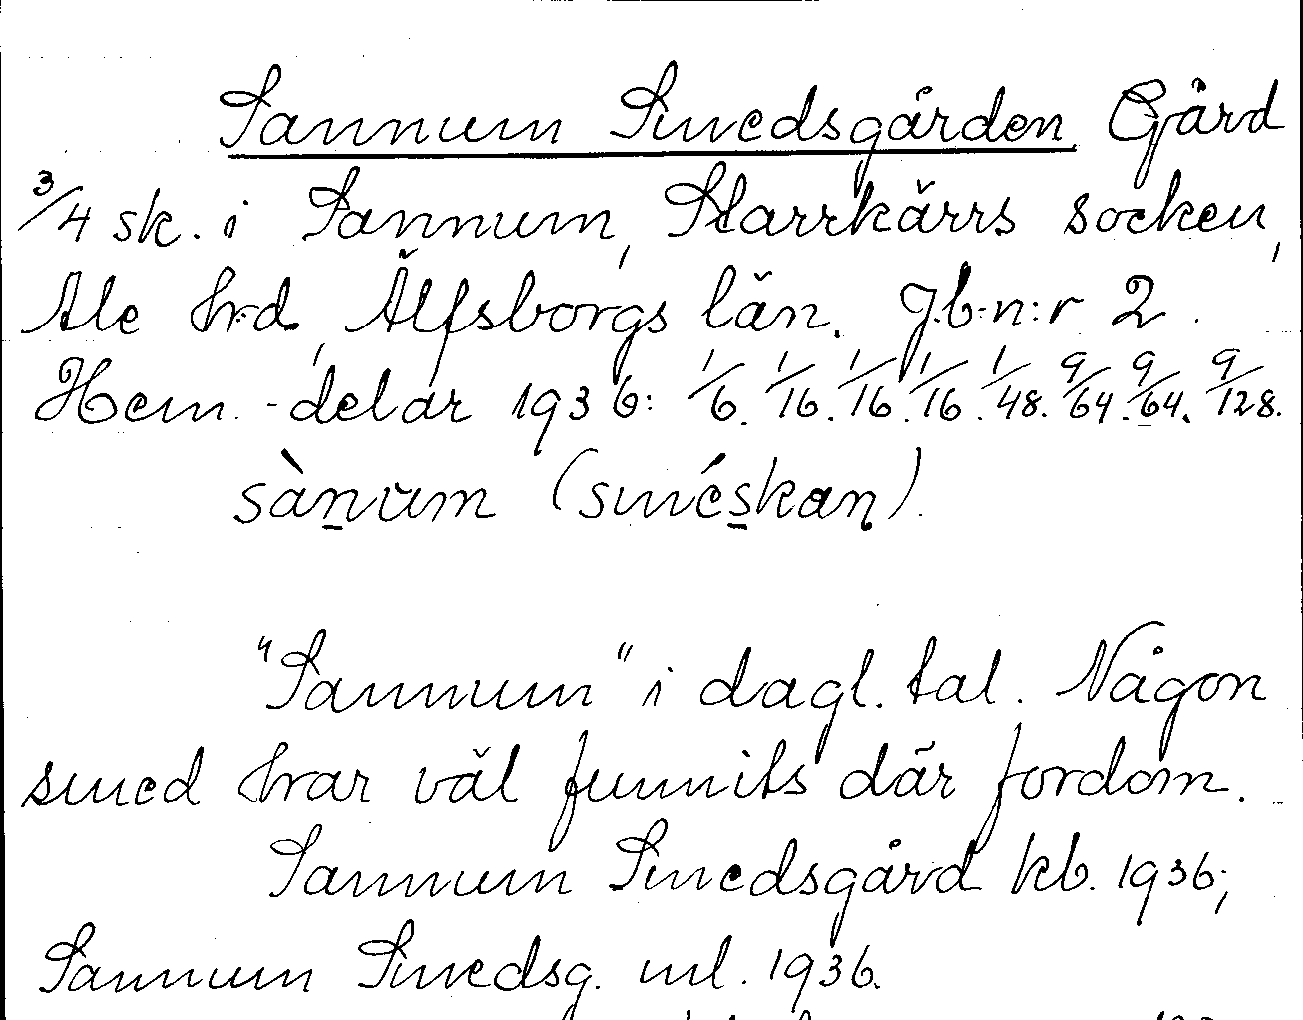 Sannum Smedsgården Gård
3/4 sk. i Sannum, Starrkärrs socken,
Ale hrd, Älfsborgs län. J.b:n:r 2.
Hem.-delar 1936: 1/6. 1/16. 1/16. 1/16. 1/48. 9/64. 9/64. 9/128.
sànum (sméskaṇ).
"Sannum" i dagl. tal. Någon
smed har väl funnits där fordom.
Sannum Smedsgård kb. 1936;
Sannum Smedsg. ml. 1936.